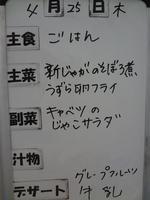 4月25日木
主食 ごはん
主菜 新じゃがのそぼろ煮、
うずら卵フライ
副菜 キャベツの
じゃこサラダ
汁物
デザート グレープフルーツ